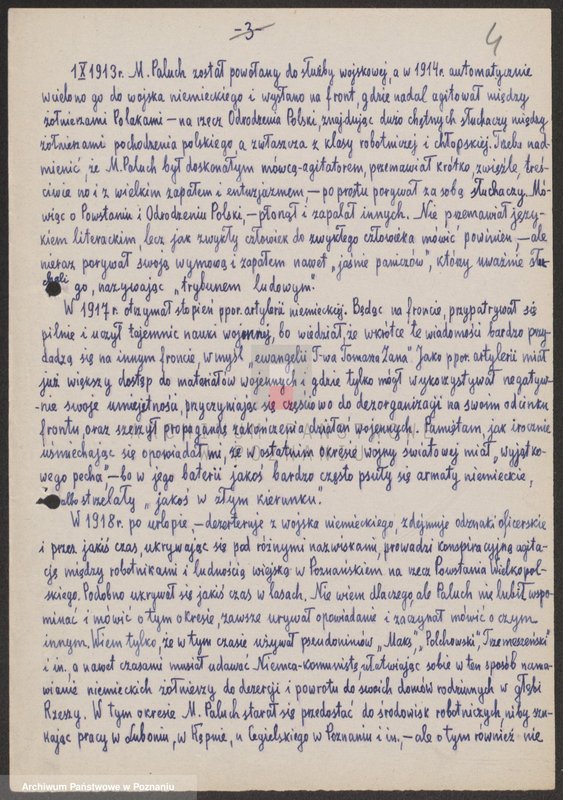 -3-
4
1 X 1913 r. M. Paluch został powołany do służby wojskowej, a w 1914 r. automatycznie
wcielono go do wojska niemieckiego i wysłano na front, gdzie nadal agitował między
żołnierzami Polakami – na rzecz Odrodzenia Polski, znajdując dużo chętnych słuchaczy między
żołnierzami pochodzenia polskiego, a zwłaszcza z klasy robotniczej i chłopskiej. Trzeba nad-
mienić, że M. Paluch był doskonałym mówcą-agitatorem, przemawiał krótko, zwięźle, treś-
ciwie no i z wielkim zapałem i entuzjazmem, – po prostu porywał za sobą słuchaczy. Mó-
wiąc o Powstaniu i Odrodzeniu Polski, – płonął i zapalał innych. Nie przemawiał języ-
kiem literackim lecz jak zwykły człowiek do zwykłego człowieka mówić powinien, – ale
nieraz porywał swoją wymową i zapałem nawet „jaśnie paniczów", którzy uważnie słu-
chali go, nazywając „trybunem ludowym".
W 1917 r. otrzymał stopień ppor. artylerii niemieckiej. Będąc na froncie, przypatrywał się
pilnie i uczył tajemnic nauki wojennej, bo wiedział że wkrótce te wiadomości bardzo przy-
dadzą się na innym froncie, w myśl „ewangelii T-wa Tomasza Zana". Jako ppor. artylerii miał
już większy dostęp do materiałów wojennych i gdzie tylko mógł wykorzystywał negatyw-
-nie swoje umiejętności, przyczyniając się częściowo do dezorganizacji na swoim odcinku
frontu oraz szerzył propagandę zakończenia działań wojennych. Pamiętam jak ironicznie
uśmiechając się opowiadał mi, że w ostatnim okresie wojny światowej miał „wyjątko-
wego pecha" – bo w jego baterii jakoś bardzo często psuły się armaty niemieckie,
albo strzelały „jakoś w złym kierunku".
W 1918 r. po urlopie, – dezerteruje z wojska niemieckiego, zdejmuje odznaki oficerskie
i przez jakiś czas, ukrywając się pod różnymi nazwiskami, prowadzi konspiracyjną agita-
cję między robotnikami i ludnością wiejską w Poznańskiem na rzecz Powstania Wielkopol-
skiego. Podobno ukrywał się jakiś czas w lasach. Nie wiem dlaczego, ale Paluch nie lubił wspo-
minać i mówić o tym okresie, zawsze urywał opowiadanie i zaczynał mówić o czym
innym. Wiem tylko, że w tym czasie używał pseudonimów „Maks", „Polchowski", „Trzemeszeński"
i in., a nawet czasami musiał udawać Niemca-komunistę, ułatwiając sobie w ten sposób nama-
wianie niemieckich żołnierzy do dezercji i powrotu do swoich domów rodzinnych w głębi
Rzeszy. W tym okresie M. Paluch starał się przedostać do środowisk robotniczych, niby szu-
kając pracy w Luboniu, w Kępnie, u Cegielskiego w Poznaniu i in., – ale o tym również nie
Archiwum Państwowe w Poznaniu